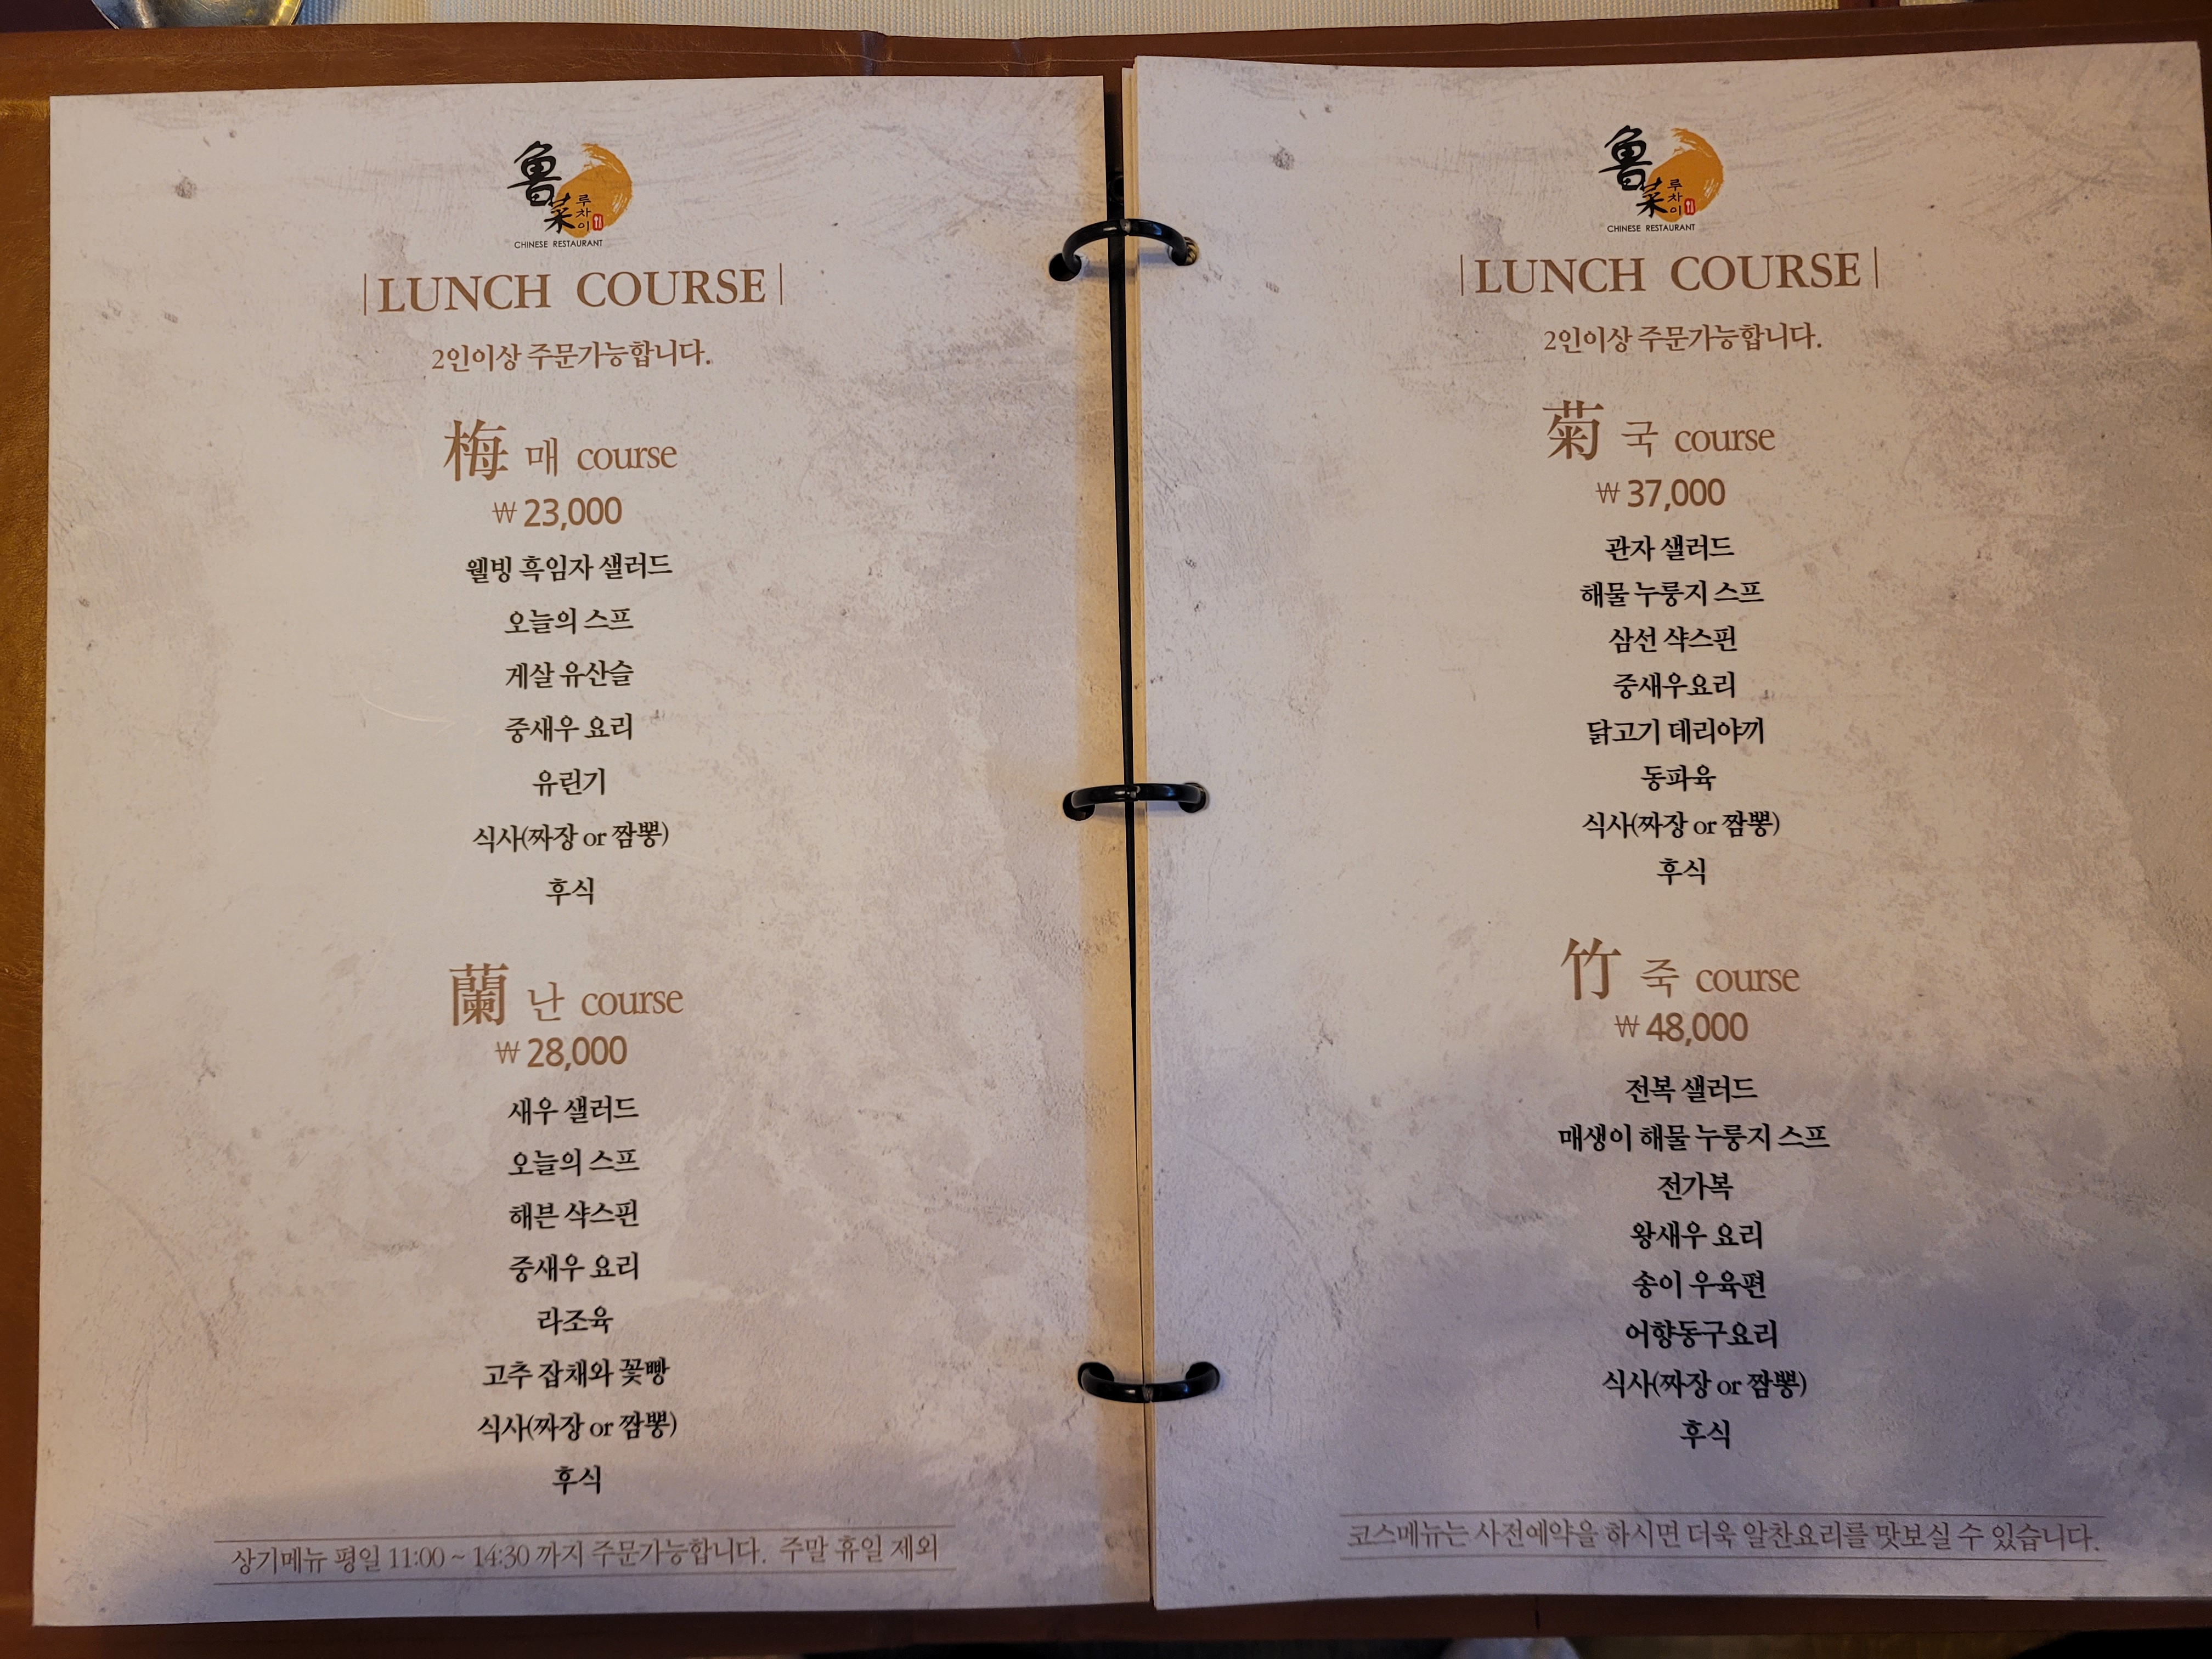 魯
菜
루차이
CHINESE RESTAURANT
LUNCH COURSE
2인이상 주문가능합니다.
梅 매 course
₩ 23,000
웰빙 흑임자 샐러드
오늘의 스프
게살 유산슬
중새우 요리
유린기
식사(짜장 or 짬뽕)
후식
蘭 난 course
₩ 28,000
새우 샐러드
오늘의 스프
해븐 샥스핀
중새우 요리
라조육
고추 잡채와 꽃빵
식사(짜장 or 짬뽕)
후식
상기메뉴 평일 11:00 ~ 14:30 까지 주문가능합니다. 주말 휴일 제외
魯
菜
루차이
CHINESE RESTAURANT
LUNCH COURSE
2인이상 주문가능합니다.
菊 국 course
₩ 37,000
관자 샐러드
해물 누룽지 스프
삼선 샥스핀
중새우요리
닭고기 데리야끼
동파육
식사(짜장 or 짬뽕)
후식
竹 죽 course
₩ 48,000
전복 샐러드
매생이 해물 누룽지 스프
전가복
왕새우 요리
송이 우육편
어향동구요리
식사(짜장 or 짬뽕)
후식
코스메뉴는 사전예약을 하시면 더욱 알찬요리를 맛보실 수 있습니다.